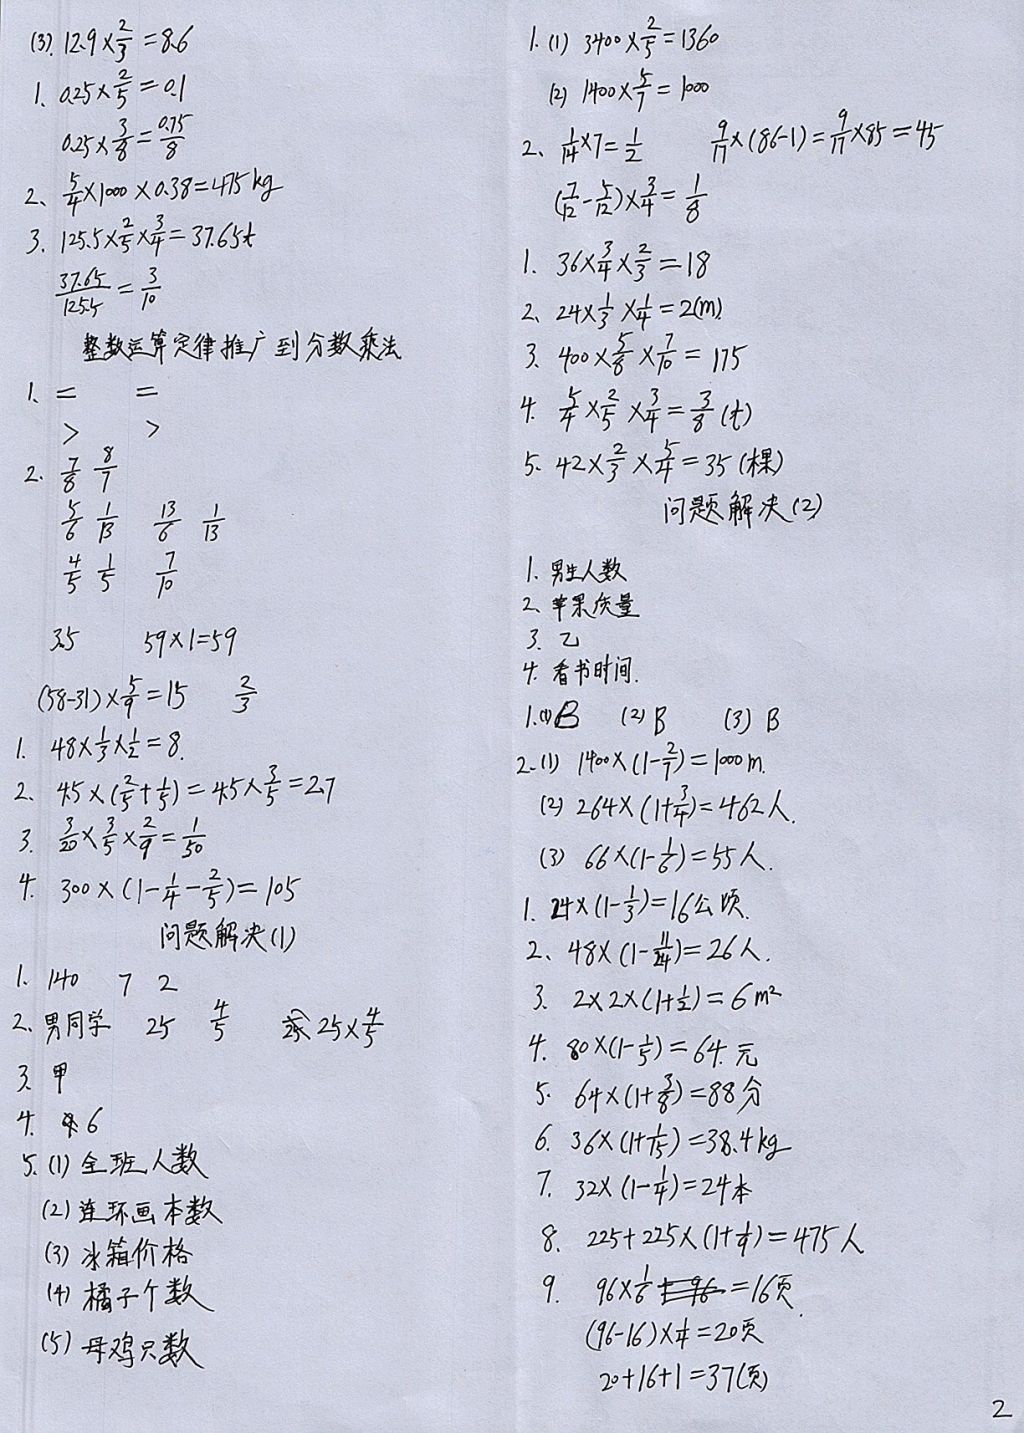 (3). 12.9×2/3=8.6
1. 0.25×2/5=0.1
0.25×3/8=0.75/8
2、5/4×1000×0.38=475kg
3. 125.5×2/5×3/4=37.65t
37.65/125.5=3/10
整数运算定律推广到分数乘法
1、= =
> >
2. 7/8 8/7
5/6 1/13 13/6 1/13
4/5 1/5 7/10
3.5 59×1=59
(58-31)×5/9=15 2/3
1. 48×1/3×1/2=8.
2、4.5×(2/5+1/5)=4.5×3/5=2.7
3. 3/20×3/5×2/9=1/50
4. 300×(1-1/4-2/5)=105
问题解决(1)
1. 140 7 2
2、男同学 25 4/5 求25×4/5
3. 甲
4. 6
5.(1)全班人数
(2)连环画本数
(3)冰箱价格
(4)橘子个数
(5)母鸡只数
1.(1) 3400×2/5=1360
(2) 1400×5/7=1000
2、1/14×7=1/2 9/17×(86-1)=9/17×85=45
(7/12-5/12)×3/4=1/8
1. 36×3/4×2/3=18
2、24×1/3×1/4=2(m).
3. 400×5/8×7/10=175
4. 5/4×2/5×3/4=3/8(t)
5. 42×2/3×5/4=35(棵)
问题解决(2)
1. 男生人数
2、苹果质量
3. 乙
4. 看书时间.
1.(1)B (2)B (3)B
2.(1) 1400×(1-2/7)=1000m.
(2) 264×(1+3/4)=462人.
(3) 66×(1-1/6)=55人.
1. 24×(1-1/3)=16公顷.
2、48×(1-11/24)=26人.
3. 2×2×(1+1/2)=6m²
4. 80×(1-1/5)=64.元
5. 64×(1+3/8)=88分
6. 36×(1+1/15)=38.4kg
7. 32×(1-1/4)=24本
8. 225+225×(1+1/9)=475人
9. 96×1/6=16页.
(96-16)×1/4=20页
20+16+1=37(页)
2